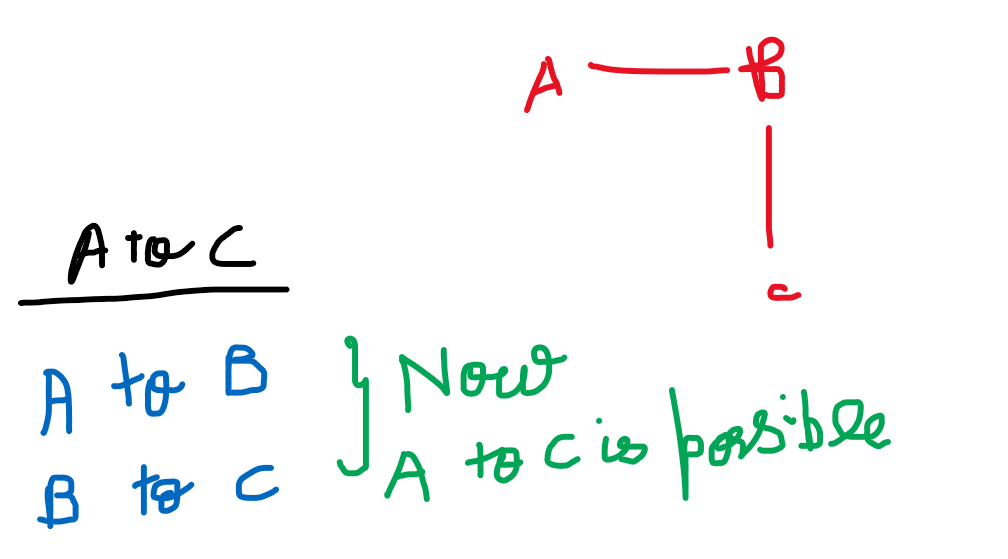 A B
C
A to C
A to B
B to C
Now
A to C is possible